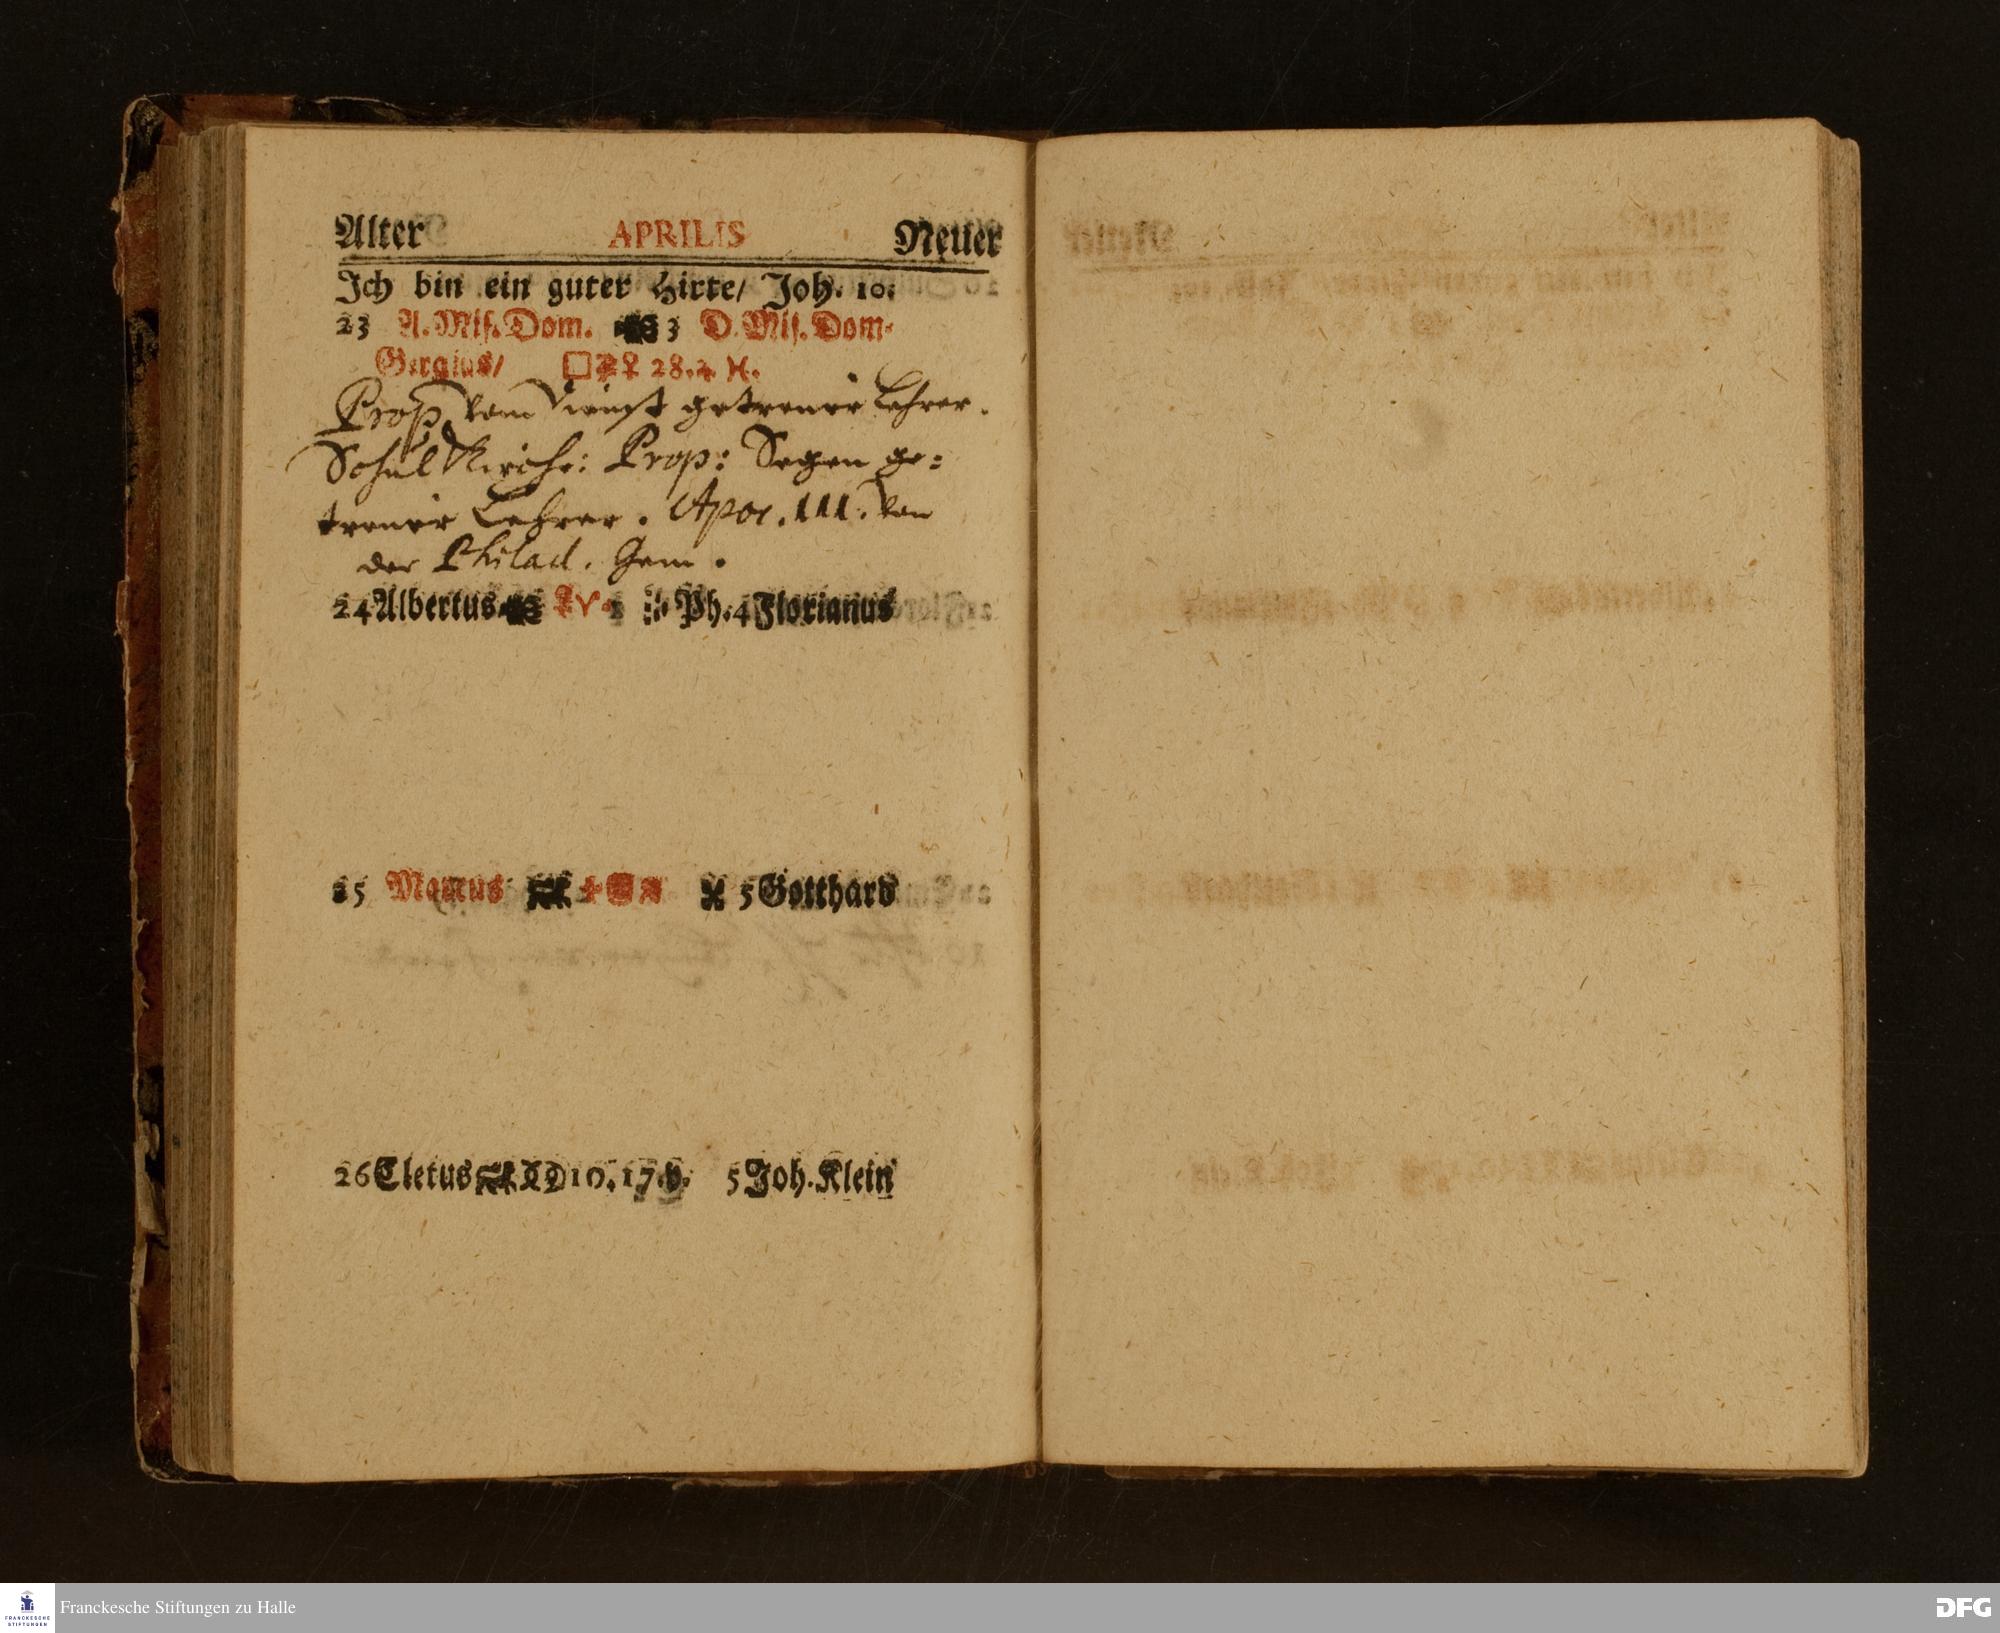 Alter APRILIS Neuer
Ich bin ein guter Hirte/ Joh. 10.
23 A. Mis. Dom. 3 D. Mis. Dom.
Gergius/ □ ♀ 28. ♓.
Prop. vom Dienst getreuer Lehrer.
Schul Kirche: Prop: Segen ge=
treuer Lehrer. Apoc. III. von
der Philad. Gem.
24 Albertus ♈ Ph. 4 Florianus
25 Marcus 5 Gotthard
26 Cletus 10. 17. 5 Joh. Klein
Franckesche Stiftungen zu Halle
FRANCKESCHE
STIFTUNGEN
DFG